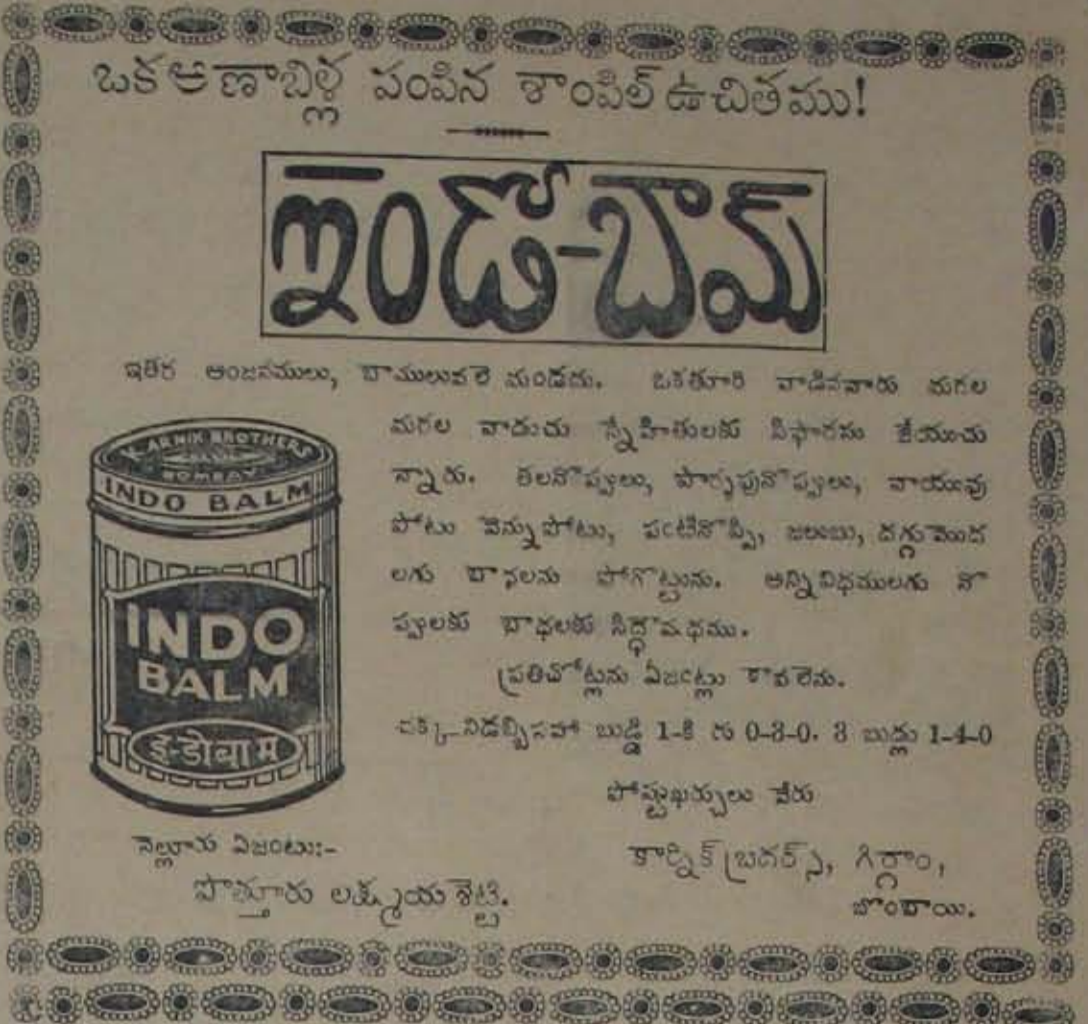 ఒక అణాబిళ్ల పంపిన శాంపిల్ ఉచితము!
ఇండో-బామ్
ఇతర అంజనములు, బాములువలె మండదు. ఒకతూరి వాడినవారు మరల
మరల వాడుచు స్నేహితులకు సిఫారసు జేయుచు
న్నారు. తలనొప్పులు, పార్శ్వపునొప్పులు, వాయువు
పోటు వెన్నుపోటు, పంటినొప్పి, జలుబు, దగ్గు మొద
లగు బాధలను పోగొట్టును. అన్నివిధములగు నొ
ప్పులకు బాధలకు సిద్ధౌషధము.
ప్రతిచోట్లను ఏజంట్లు కావలెను.
చక్కనిడబ్బిసహా బుడ్డి 1-కి రు 0-8-0. 3 బుడ్లు 1-4-0
పోష్టుఖర్చులు వేరు
KARNIK BROTHERS
BOMBAY
INDO BALM
INDO
BALM
इंडोबाम
నెల్లూరు ఏజంటు:-
పొత్తూరు లక్ష్మయశెట్టి.
కార్నిక్ బ్రదర్స్, గిర్గాం,
బొంబాయి.